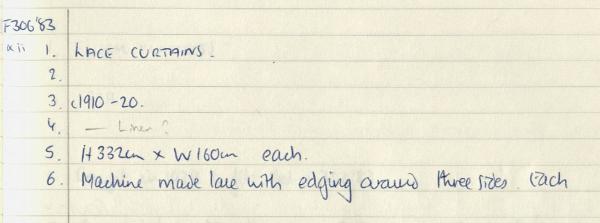 F306'83
xii 1. LACE CURTAINS.
2.
3. c1910-20.
4. — Linen?
5. H 332cm x W 160cm each.
6. Machine made lace with edging around three sides. Each